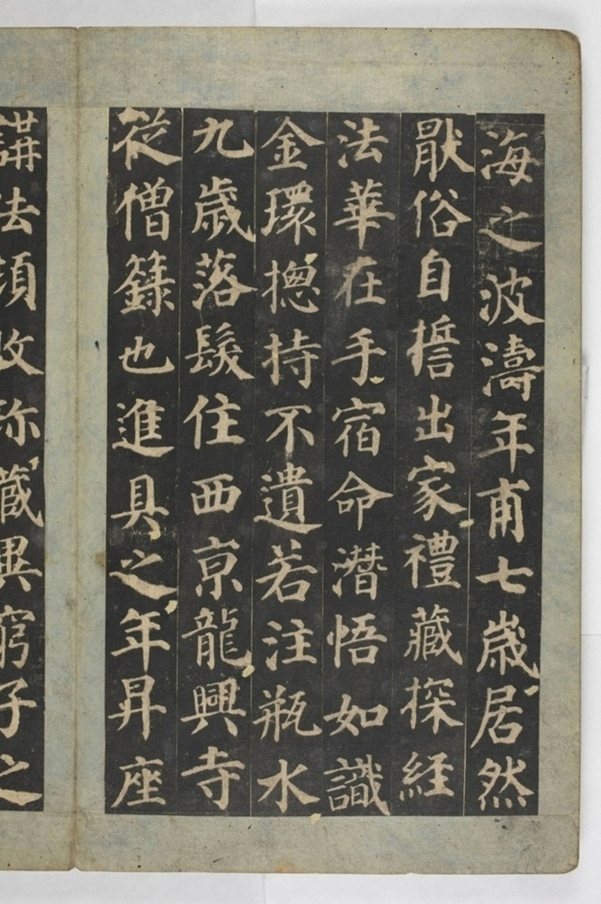 海之波濤年甫七歲居然
猒俗自誓出家禮藏探經
法華在手宿命潛悟如識
金環揔持不遺若注瓶水
九歲落髮住西京龍興寺
從僧籙也進具之年昇座
講法頃收珍藏異窮子之